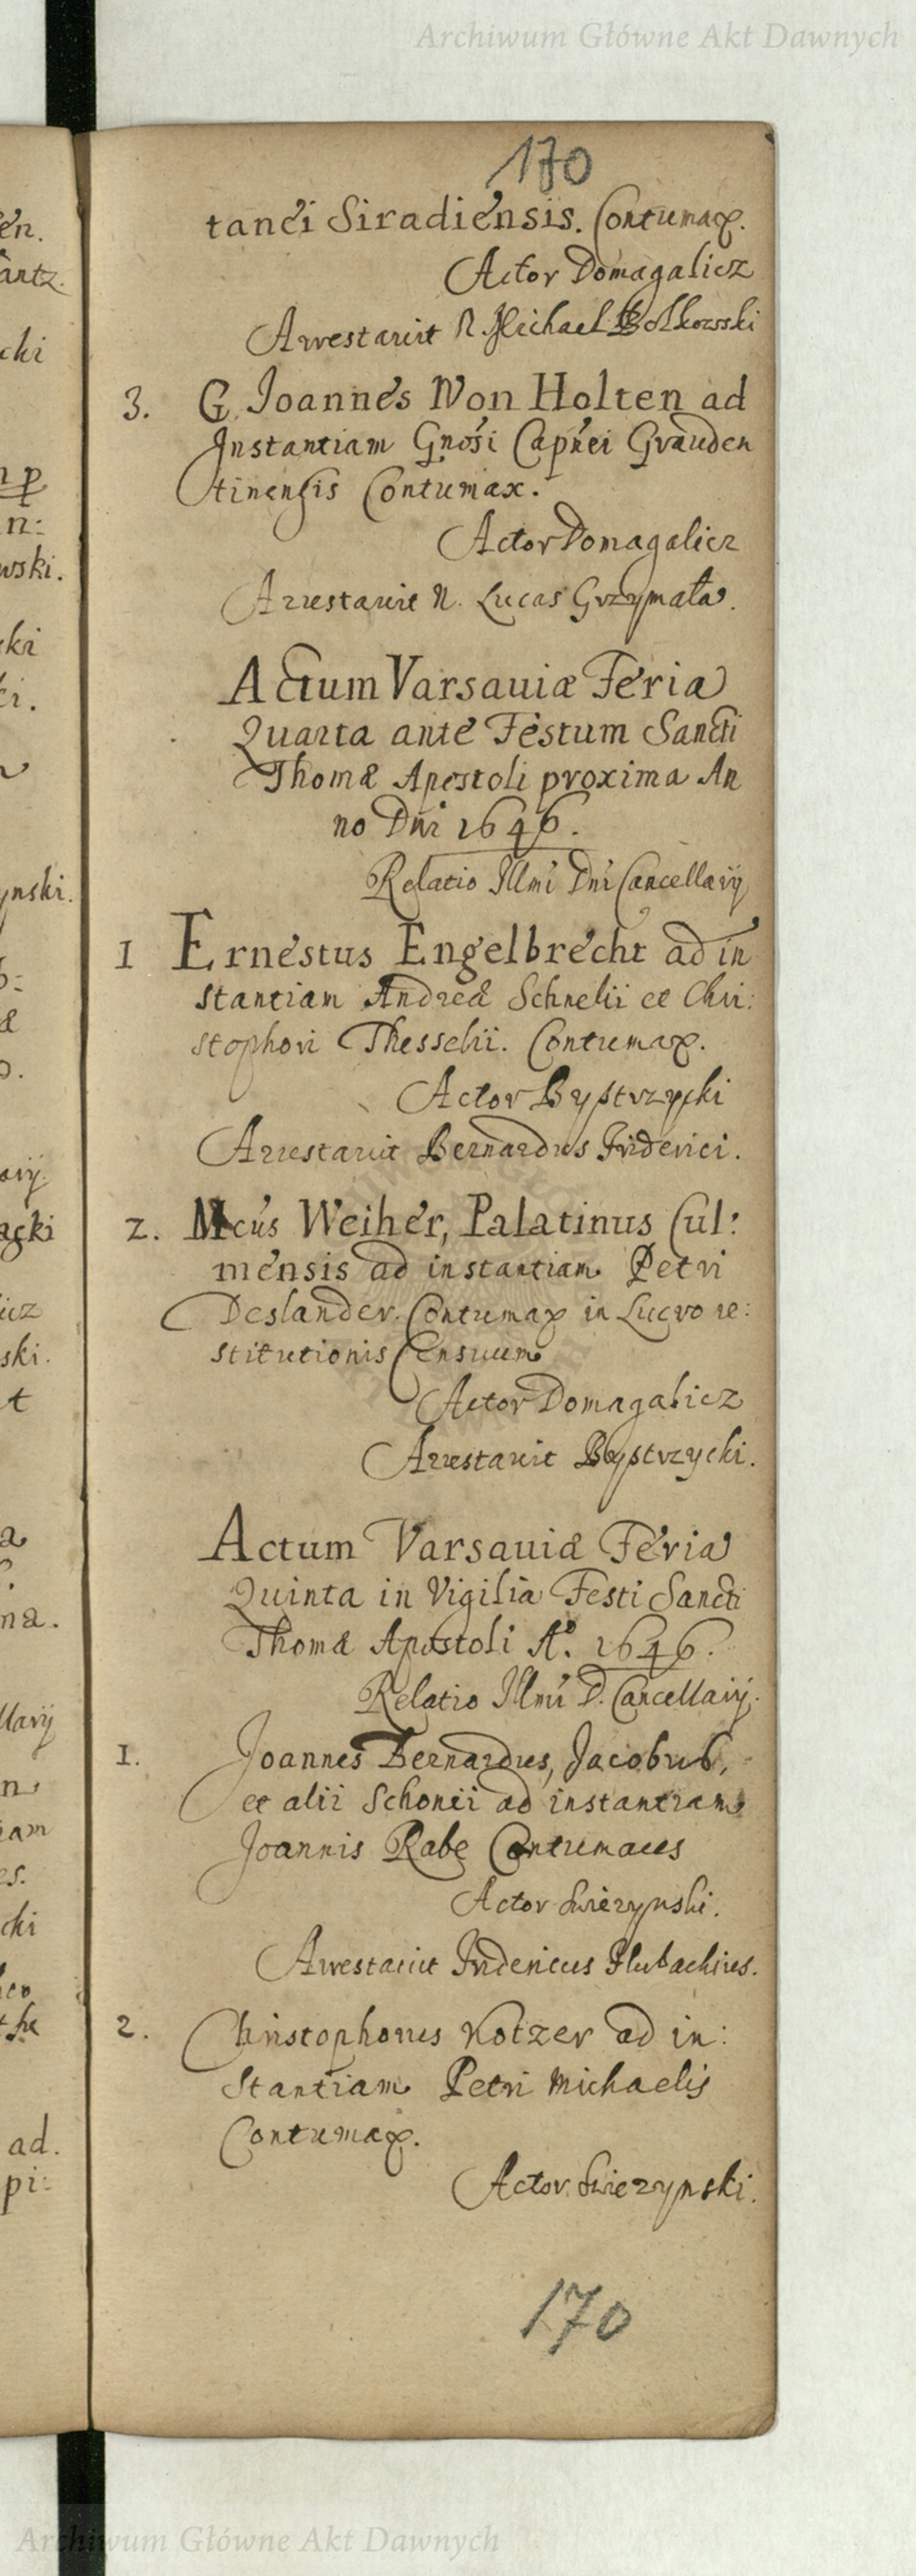 Archiwum Główne Akt Dawnych
170
tanei Siradiensis. Contumax.
Actor Domagalicz
Arrestavit N. Michael
3. G. Joannes Von Holten ad
Instantiam Gnosi Capnei Grauden
tinensis Contumax.
Actor Domagalicz
Arrestavit N. Lucas Grzymała.
Actum Varsaviæ Feria
Quarta ante Festum Sancti
Thomæ Apostoli proxima An
no Dni 1646.
Relatio Illmi Dni Cancellarij
1 Ernestus Engelbrecht ad in
stantiam Andreæ Schnelii et Chri:
stophori Thesselii. Contumax.
Actor Bystrzycki
Arrestavit Bernardus Friderici.
2. Mcus Weiher, Palatinus Cul:
mensis ad instantiam Petri
Deslander. Contumax in Lucro re:
stitutionis Censuum
Actor Domagalicz
Arrestavit Bystrzycki.
Actum Varsaviæ Feria
Quinta in Vigilia Festi Sancti
Thomæ Apostoli Aº. 1646.
Relatio Illmi D. Cancellarij.
1. Joannes Bernardus, Jacobus,
et alii Schonii ad instantiam
Joannis Rabe Contumaces
Actor Swiezynski.
Arrestavit Fridericus Hubachius.
2. Christophorus Kotzer ad in:
stantiam Petri Michaelis
Contumax.
Actor Swiezynski.
170
Archiwum Główne Akt Dawnych